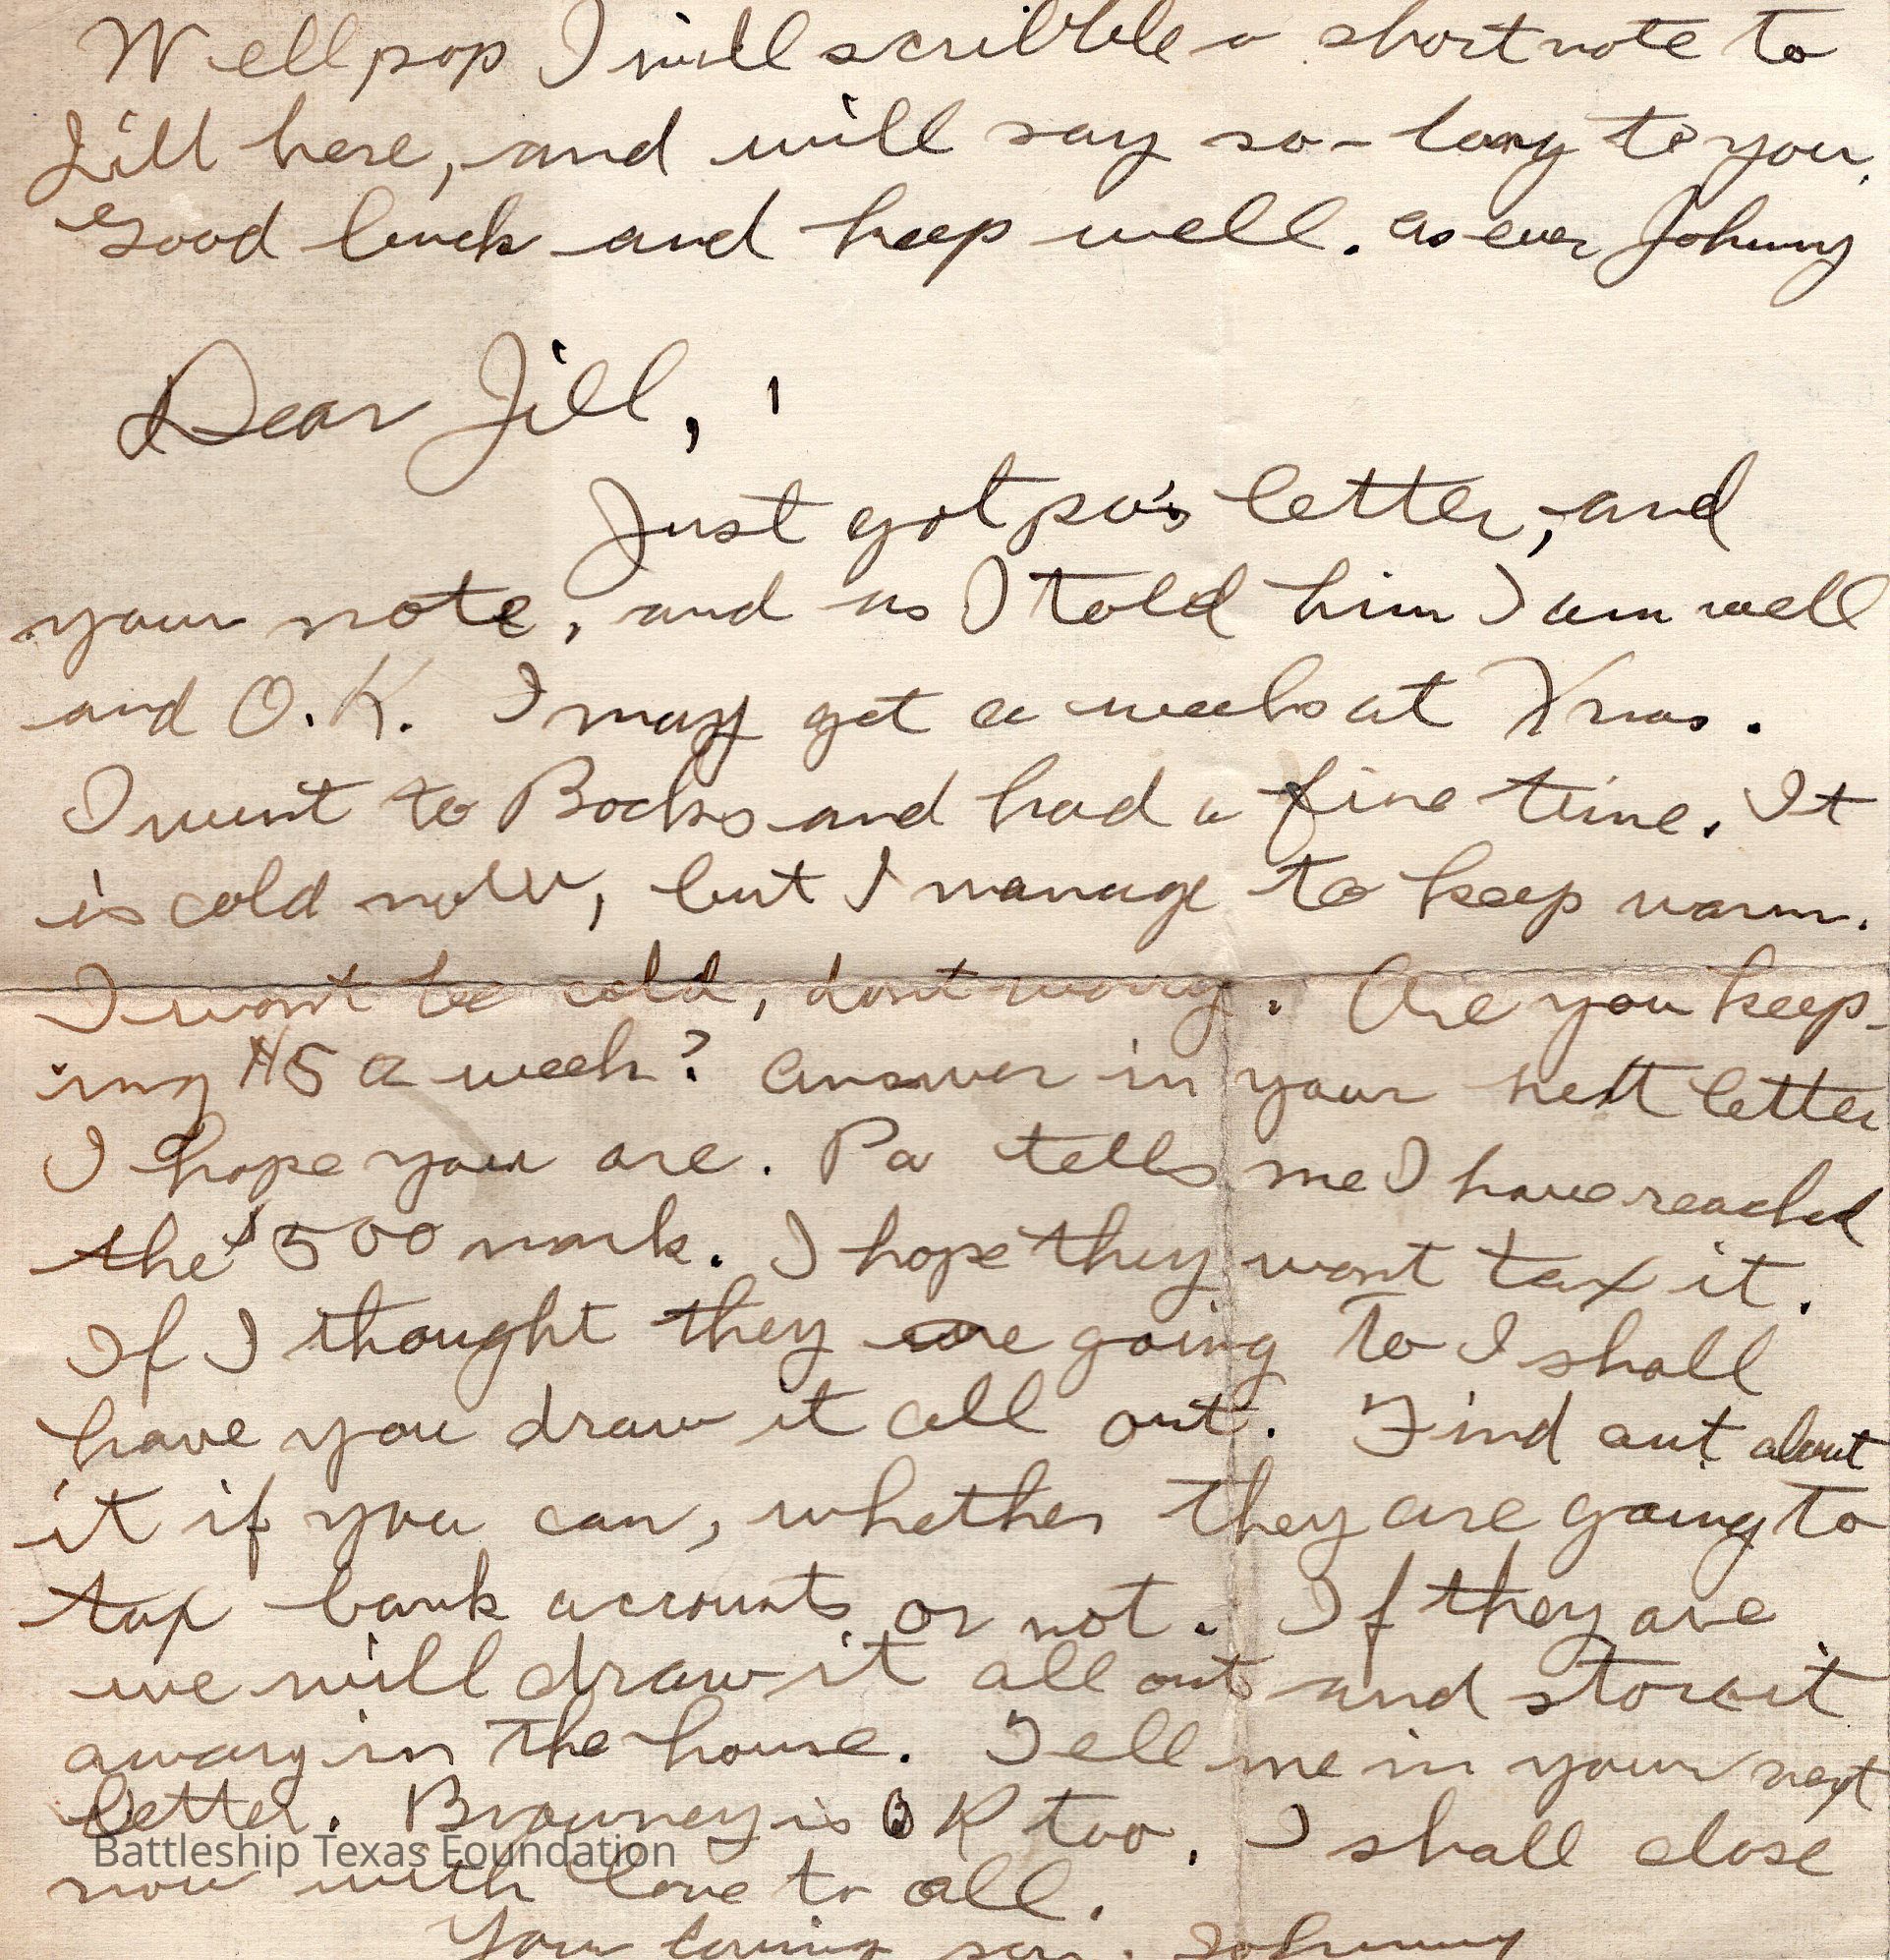 Well pop I will scribble a short note to
Jill here, and will say so-long to you.
Good luck and keep well. As ever Johnny
Dear Jill,
Just got pa's letter, and
your note, and as I told him I am well
and O.K. I may get a weeks at Xmas.
I went to Bocks and had a fine time. It
is cold now, but I manage to keep warm.
I wont be cold, dont worry. Are you keep-
ing $5 a week? Answer in your next letter
I hope you are. Pa tells me I have reached
the $500 mark. I hope they wont tax it.
If I thought they are going to I shall
have you draw it all out. Find out about
it if you can, whether they are going to
tax bank accounts or not. If they are
we will draw it all out and store it
away in the house. Tell me in your next
letter. Browney is OK too. I shall close
Battleship Texas Foundation
now with love to all.
Your loving son. Johnny